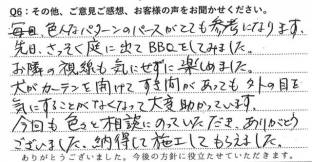 Q6:その他、ご意見ご感想、お客様の声をお聞かせください。
毎回、色んなパターンのパースがとても参考になります。
先日、さっそく庭に出てBBQをしてみました。
お隣の視線も気にせずに楽しめました。
犬がカーテンを開けてすき間があっても外の目を
気にすることがなくなって大変助かっています。
今回も色々と相談にのっていただき、ありがとう
ございました。納得して施工してもらえました。
ありがとうございました。今後の方針に役立させていただきます。